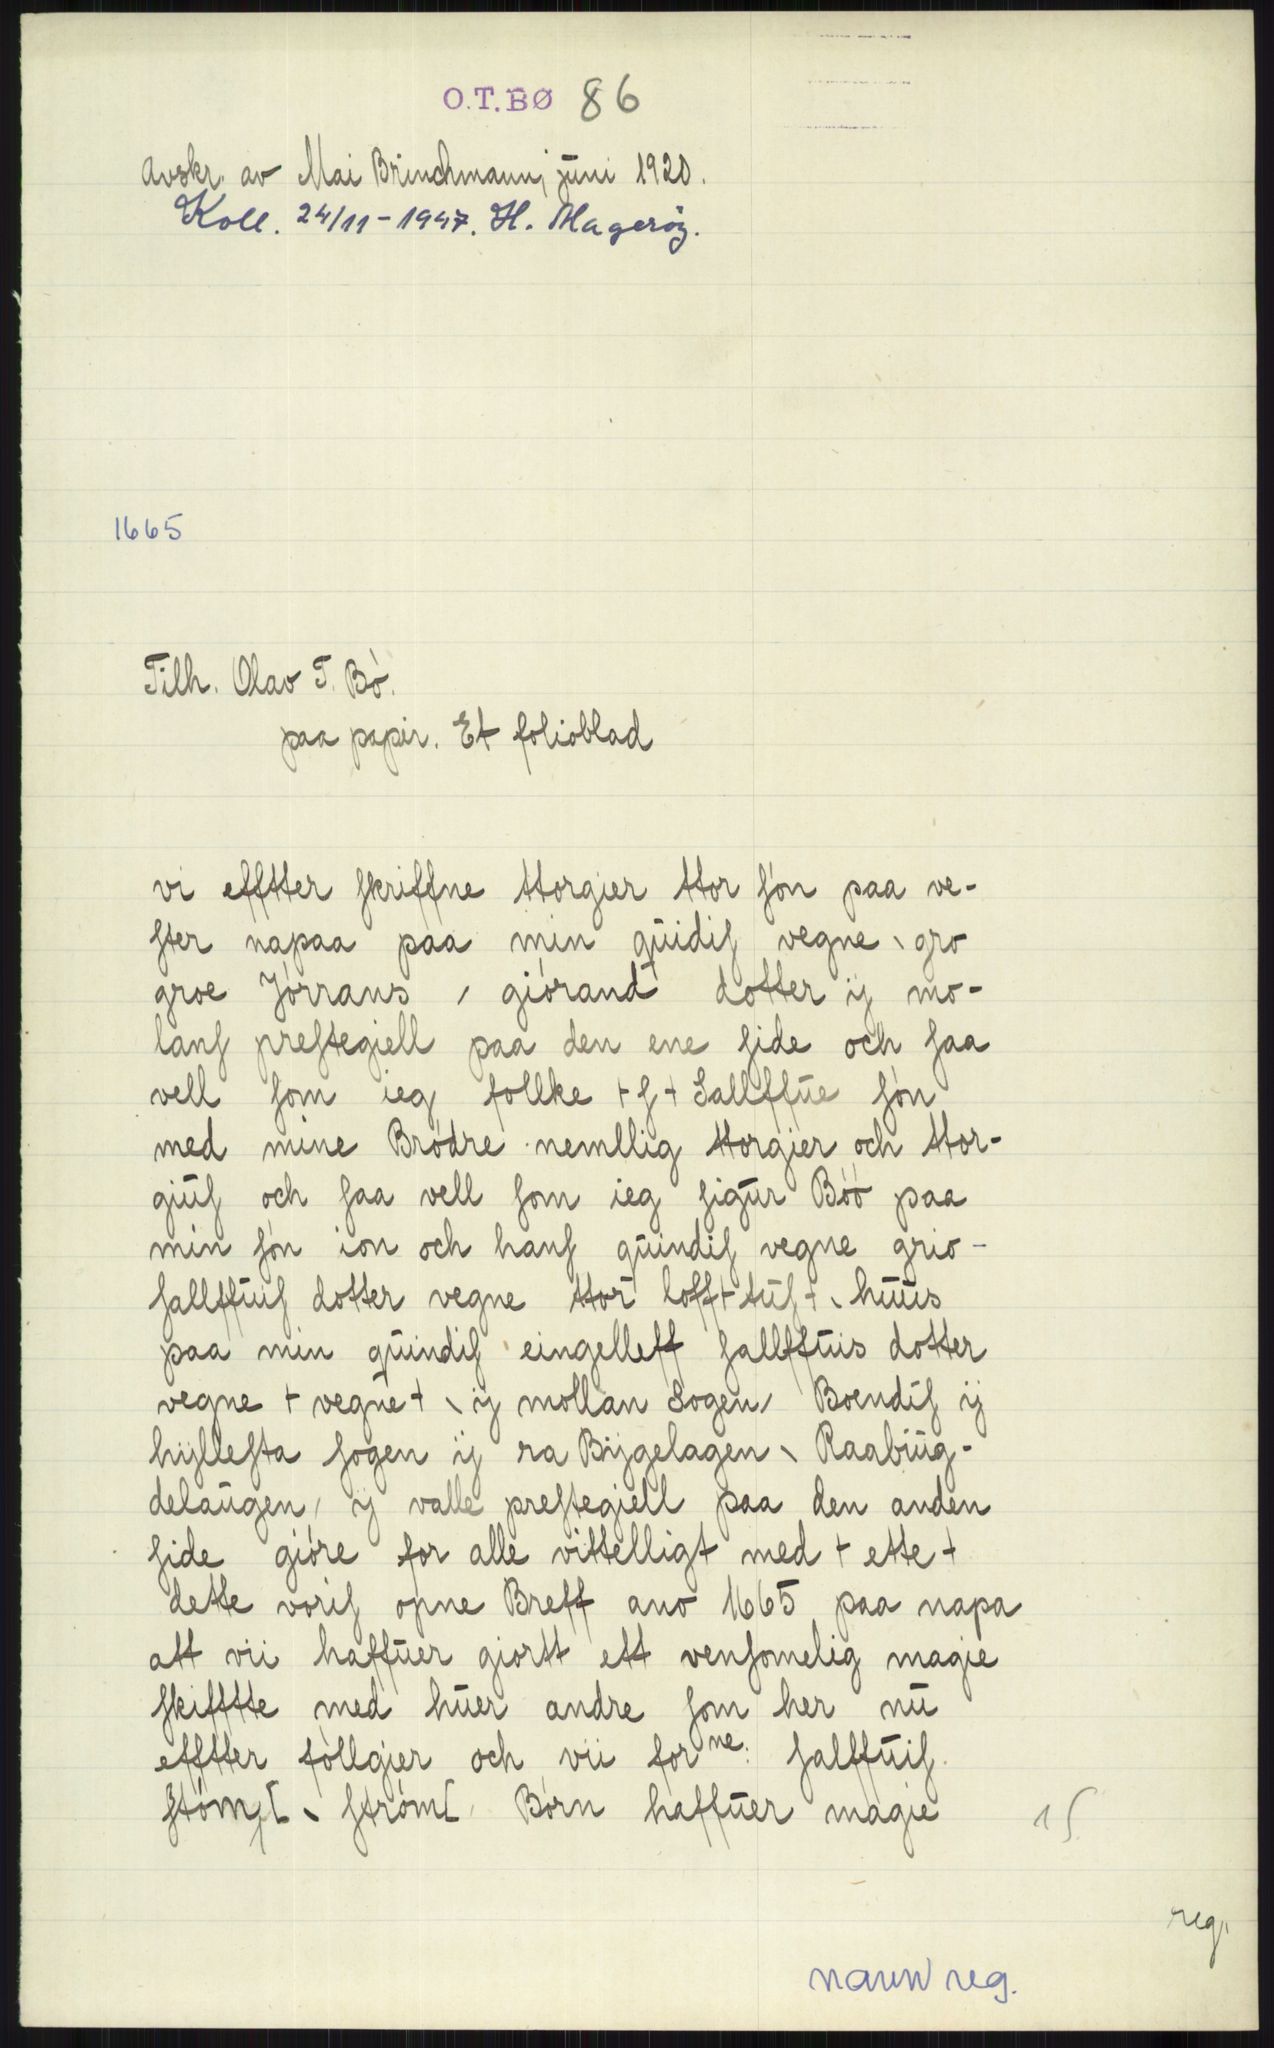 O.T.BØ 86
Avskr. av Mai Brinchmann, juni 1920.
Koll. 24/11-1947. H. Magerøy.
1665
Tilh. Olav T. Bø.
paa papir. Et folioblad
vi efftter ſkriffne ttorgier ttor ſøn paa ve-
ſter napaa paa min qūidiſ vegne \ gro
groe Jørrans / giørand dotter ij mo-
lanſ preſtegiell paa den ene ſide och ſaa
vell ſom ieg follke + ſ + Sallffūe ſøn
med mine Brødre nemllig ttorgier och ttor-
giūſ och ſaa vell ſom ieg ſigūr Bøø paa
min ſøn ion och hanſ qūindiſ vegne grio-
ſallffūiſ dotter vegne ttor lofft + tūſ + \ hūūs
paa min qūindiſ eingelleff ſallffūis dotter
vegne + vegne + \ ij mollan Sogen / Boendiſ ij
hijlleſta ſogen ij ra Bijgelagen \ Raabiūg-
delaūgen / ij valle preſtegiell paa den anden
ſide giøre for alle vittelligt med + ette +
dette voriſ opne Breff ano 1665 paa napa
att vii haffūer giortt ett venſomelig magie
ſkifftte med hūer andre ſom her nū
efftter føllgier och vii for ne: ſalffūiſ
ſtøm[ \ ſtrøm[ / Børn haffūer magie
15
reg.
navn reg.